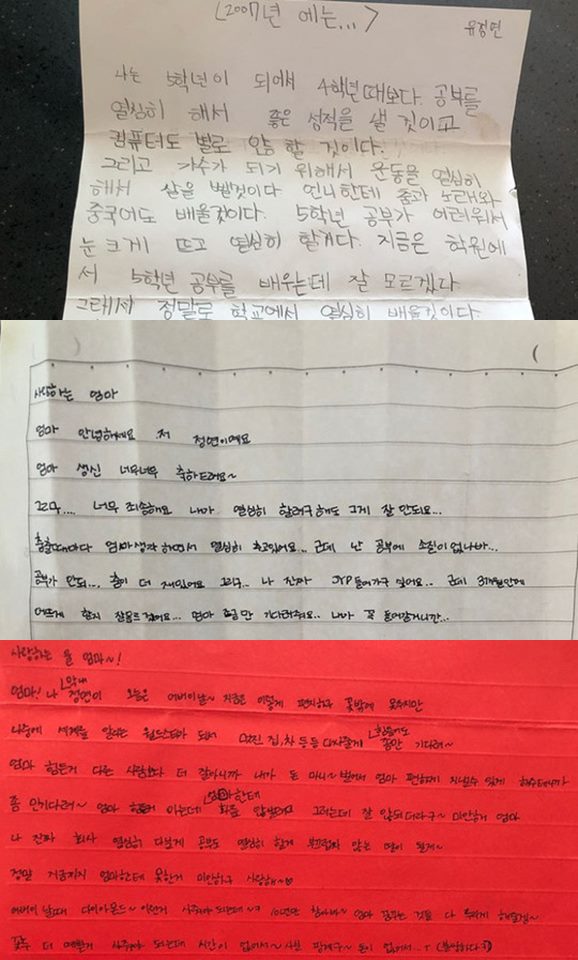 <2007년 에는...>
유정연
나는 5학년이 되어서 4학년때보다 공부를
열심히 해서 좋은 성적을 낼 것이고
컴퓨터도 별로 안 할 것이다.
그리고 가수가 되기 위해서 운동을 열심히
해서 살을 뺄것이다 언니한테 춤과 노래와
중국어도 배울것이다. 5학년 공부가 어려워서
눈 크게 뜨고 열심히 할거다. 지금은 학원에
서 5학년 공부를 배우는데 잘 모르겠다
그래서 정말로 학교에서 열심히 배울것이다.
사랑하는 엄마
엄마 안녕하세요 저 정연이에요
엄마 생신 너무너무 축하드려요~
그리구.... 너무 죄송해요 내가 열심히 할려구해도 그게 잘 안되요...
춤출때마다 엄마생각 하면서 열심히 추고있어요.. 근데 난 공부에 소질이 없나봐...
공부가 안되... 춤이 더 재밌어요 그리구.. 나 진짜 JYP들어가구 싶어요.. 근데 3개월안에
어떻게 할지 잘모르겠어요... 엄마 조금만 기다려줘요.. 내가 꼭 들어갈거니깐...
사랑하는 울 엄마~!
엄마! 나 막내 정연이 오늘은 어버이날~ 지금은 이렇게 편지하구 꽃밖에 못주지만
나중에 세계를 알리는 월드스타가 되서 멋진 집, 차 등등 다사줄게 힘들어도 좀만 기다려~
엄마 힘든거 다른 사람보다 더 잘아니까 내가 돈 마니~ 벌어서 엄마 편하게 지낼수 있게 해줄테니까
좀 만기다려~ 엄마 힘든거 아는데 엄마한테 화를 안낼려고 그러는데 잘 안되더라구~ 미안해 엄마
나 진짜 회사 열심히 다닐게 공부도 열심히 할게 부끄럽지 않는 딸이 될게~
정말 지금까지 엄마한테 못한거 미안하구 사랑해~♡
어버이 날때 다이아몬드~ 이런거 사줘야 되는데~ 10년만 참아봐~ 엄마 꿈꾸는 것을 다 누리게 해줄게~
꽃두 더 예쁜거 사줘야 되는데 시간이 없어서~ 돈이 없어서..